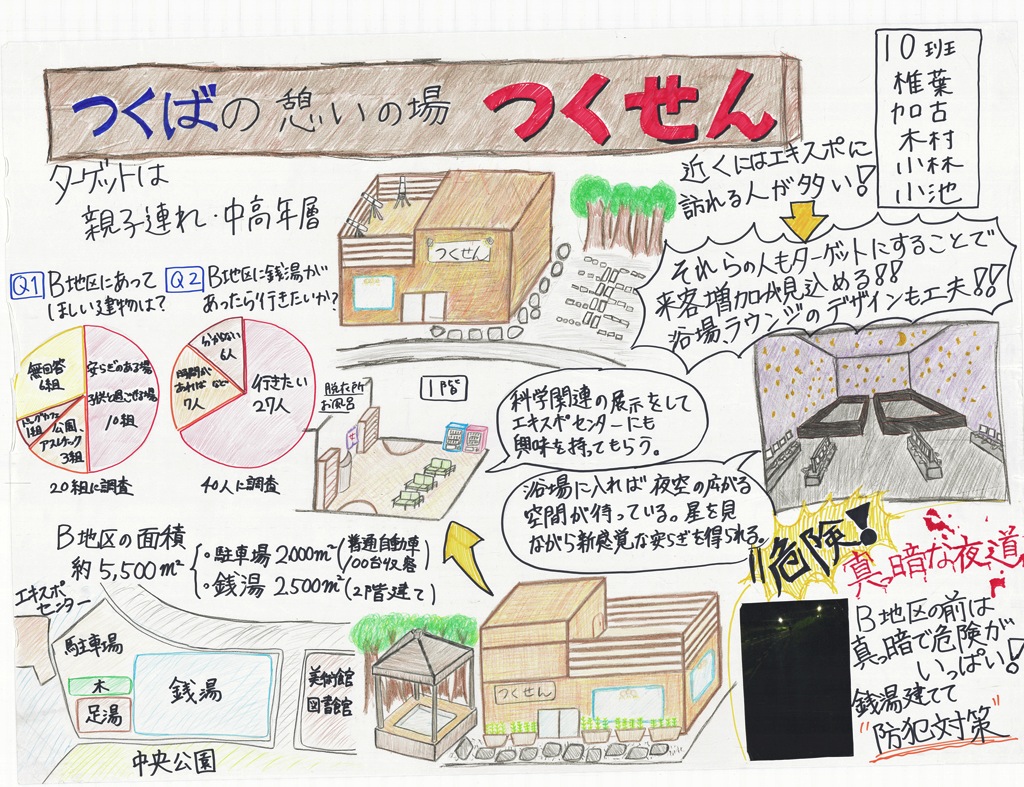 つくばの憩いの場 つくせん
10班
椎葉
加古
木村
小林
小池
ターゲットは
親子連れ・中高年層
近くにはエキスポに
訪れる人が多い!
それらの人もターゲットにすることで
来客増加が見込める!!
浴場、ラウンジのデザインも工夫!!
Q1 B地区にあって
ほしい建物は?
無回答
6組
安らぎのある場
子供と過ごせる場
10組
公園、
アスレチック
3組
1組
20組に調査
Q2 B地区に銭湯が
あったら行きたいか?
わからない
6人
時間が
あれば など
7人
行きたい
27人
40人に調査
つくせん
1階
脱衣所
お風呂
科学関連の展示をして
エキスポセンターにも
興味を持ってもらう。
浴場に入れば夜空の広がる
空間が待っている。星を見
ながら新感覚な安らぎを得られる。
B地区の面積
約5,500m²
・駐車場 2000m²(普通自動車
100台収容)
・銭湯 2500m²(2階建て)
エキスポ
センター
駐車場
木
足湯
銭湯
美術館
図書館
中央公園
つくせん
危険!
真っ暗な夜道
B地区の前は
真っ暗で危険が
いっぱい!
銭湯建てて
"防犯対策"